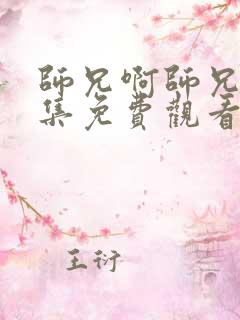 師兄啊師兄
集免費觀看
王衍